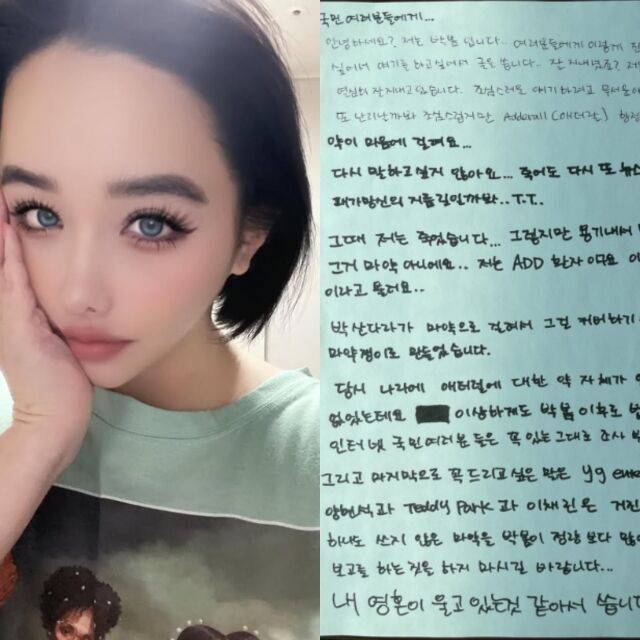 국민 여러분들에게...
안녕하세요? 저는 박봄 입니다.. 여러분들에게 이렇게 전
싶어서 얘기를 하고싶어서 글도 씁니다.. 잘 지내셨죠? 저
열심히 잘지내고있습니다. 조심스러운 얘기 하려고
또 난리난까봐 조심스럽지만 Adderall (애더럴)
약이 마음에 걸려요...
다시 말하고싶지 않아요... 죽어도 다시 또 뉴스
패가망신의 지름길일까봐.. T.T.
그때 저는 죽었습니다... 그렇지만 용기내서
그거 마약 아니에요.. 저는 ADD 환자 이고요
이라고 불려요..
박산다라가 마약으로 걸려서 그걸 커버하기
마약쟁이로 만들었습니다.
당시 나라에 애더럴에 대한 약 자체가
없었는데요 이상하게도 박봄 이후로
인터넷 국민여러분들은 꼭 있는그대로 조사
그리고 마지막으로 꼭 드리고싶은 말은 yg
양현석과 Teddy Park과 이채린은
하나도 쓰지 않은 마약을 박봄이 정량 보다
보고를 하는것을 하지 마시길 바랍니다...
내 영혼이 울고 있는것 같아서 씁니다